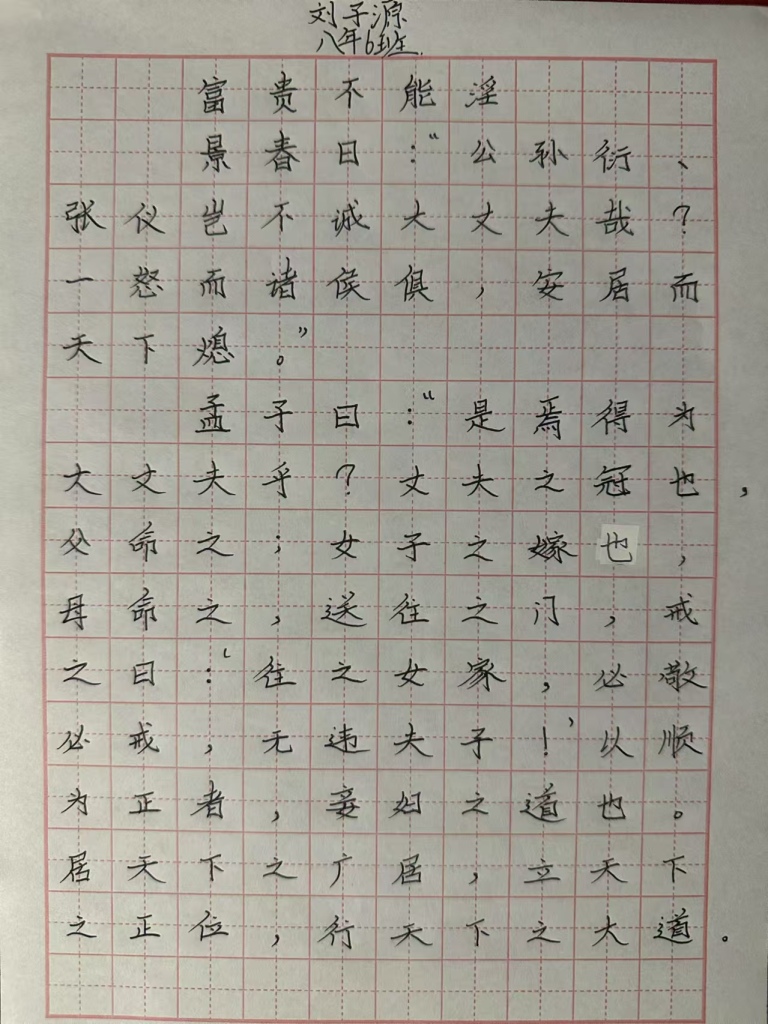 刘子源
八年6班
富贵不能淫
景春曰:“公孙衍、
张仪岂不诚大丈夫哉?
一怒而诸侯俱,安居而
天下熄。”
孟子曰:“是焉得为
大丈夫乎?丈夫之冠也,
父命之;女子之嫁也,
母命之,送往之门,戒
之曰:‘往之女家,必敬
必戒,无违夫子!’以顺
为正者,妾妇之道也。
居天下之广居,立天下
之正位,行天下之大道。